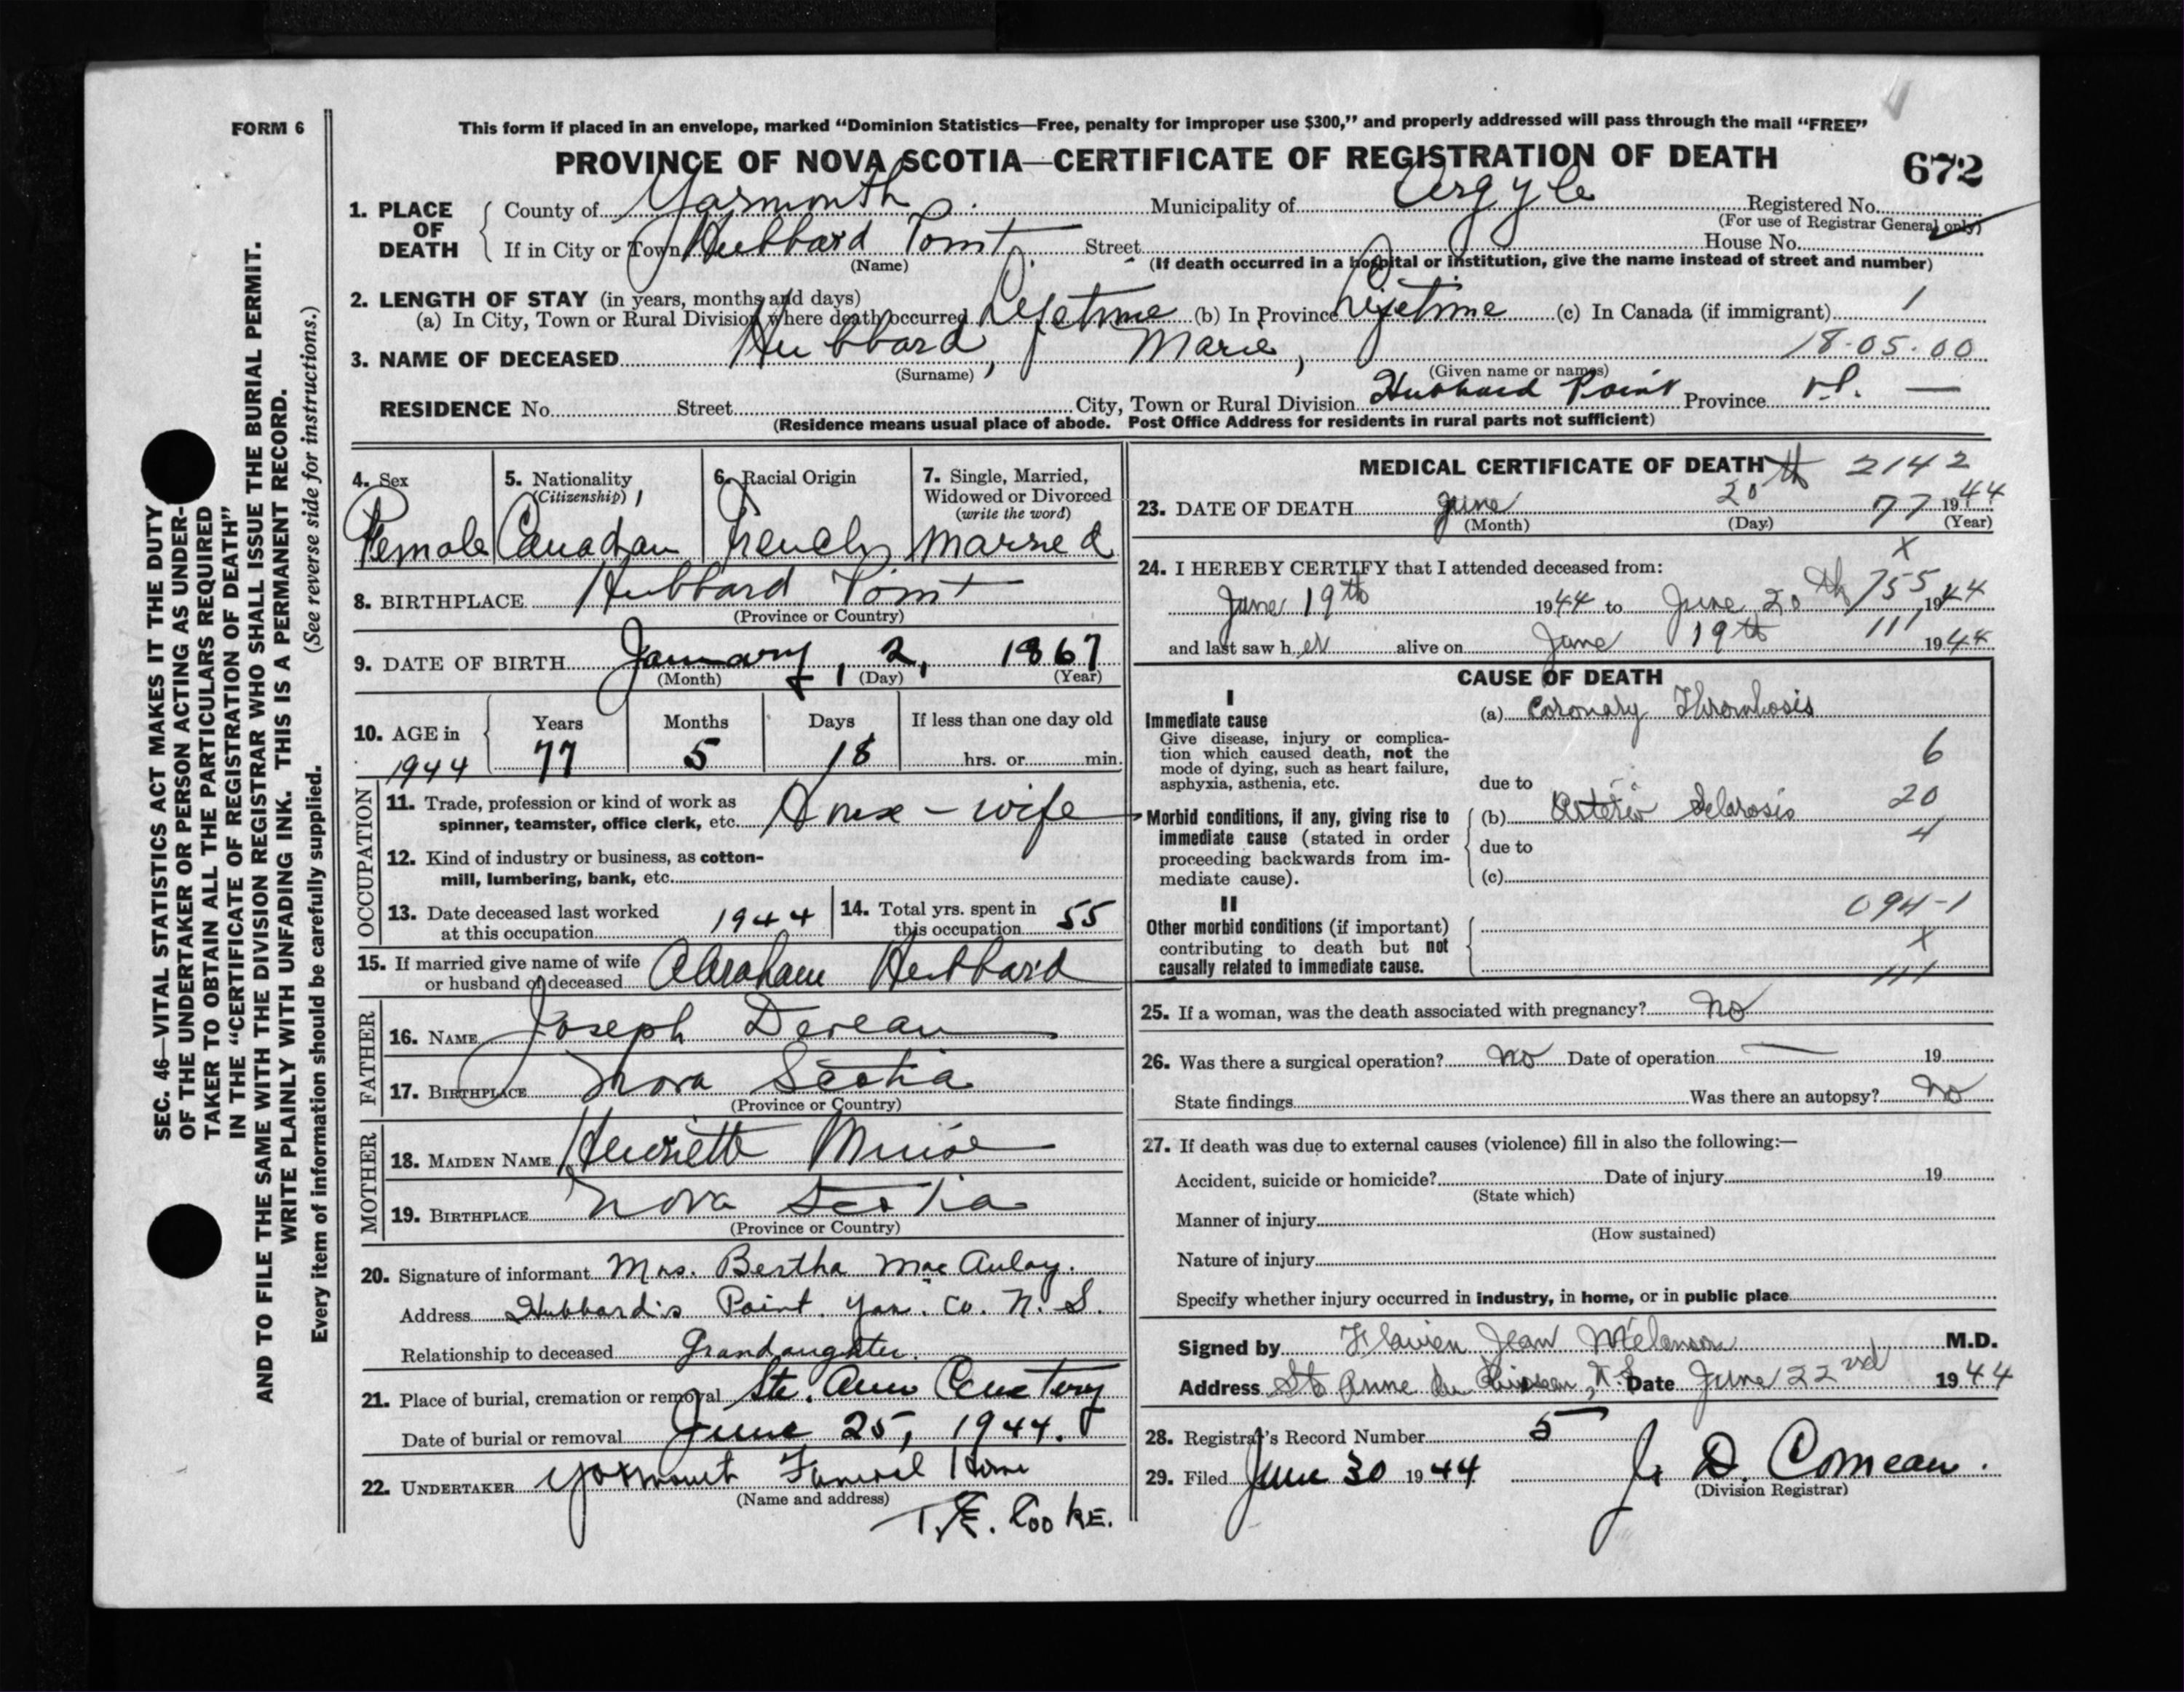 FORM 6
This form if placed in an envelope, marked “Dominion Statistics—Free, penalty for improper use $300,” and properly addressed will pass through the mail “FREE”
PROVINCE OF NOVA SCOTIA—CERTIFICATE OF REGISTRATION OF DEATH
672
1. PLACE OF DEATH
County of Yarmouth Municipality of Argyle Registered No.
(For use of Registrar General only)
If in City or Town Hubbard Point Street House No.
(Name) (If death occurred in a hospital or institution, give the name instead of street and number)
2. LENGTH OF STAY (in years, months and days)
(a) In City, Town or Rural Division where death occurred Lifetime (b) In Province Lifetime (c) In Canada (if immigrant) 1
3. NAME OF DECEASED Hubbard, Marie, 18-05-00
(Surname) (Given name or names)
RESIDENCE No. Street City, Town or Rural Division Hubbard Point Province
(Residence means usual place of abode. Post Office Address for residents in rural parts not sufficient)
4. Sex
Female
5. Nationality
(Citizenship) 1
Canadian
6. Racial Origin
French
7. Single, Married,
Widowed or Divorced
(write the word)
Married
8. BIRTHPLACE Hubbard Point
(Province or Country)
9. DATE OF BIRTH January, 2, 1867
(Month) (Day) (Year)
10. AGE in 1944
Years 77
Months 5
Days 18
If less than one day old
hrs. or min.
OCCUPATION
11. Trade, profession or kind of work as
spinner, teamster, office clerk, etc. House-wife
12. Kind of industry or business, as cotton-
mill, lumbering, bank, etc.
13. Date deceased last worked
at this occupation 1944
14. Total yrs. spent in
this occupation 55
15. If married give name of wife
or husband of deceased Abraham Hubbard
FATHER
16. NAME Joseph
17. BIRTHPLACE Nova Scotia
(Province or Country)
MOTHER
18. MAIDEN NAME Henriette
19. BIRTHPLACE Nova Scotia
(Province or Country)
20. Signature of informant Mrs. Bertha MacAulay.
Address Hubbard's Point. Yar. Co. N. S.
Relationship to deceased Grandaughter.
21. Place of burial, cremation or removal Ste. Ann Cemetery
Date of burial or removal June 25, 1944.
22. UNDERTAKER Yarmouth Funeral Home
(Name and address)
T. E. Cooke.
MEDICAL CERTIFICATE OF DEATH 2142
23. DATE OF DEATH June 20th 77 1944
(Month) (Day) (Year)
X
24. I HEREBY CERTIFY that I attended deceased from:
June 19th 1944 to June 20th 755 1944
and last saw her alive on June 19th 111 1944
CAUSE OF DEATH
I
Immediate cause
Give disease, injury or complica-
tion which caused death, not the
mode of dying, such as heart failure,
asphyxia, asthenia, etc.
(a) Coronary Thrombosis
6
due to
Morbid conditions, if any, giving rise to
immediate cause (stated in order
proceeding backwards from im-
mediate cause).
(b) Arterio Sclarosis 20
due to 4
(c)
II
Other morbid conditions (if important)
contributing to death but not
causally related to immediate cause.
094-1
X
111
25. If a woman, was the death associated with pregnancy? no
26. Was there a surgical operation? no Date of operation — 19
State findings Was there an autopsy? no
27. If death was due to external causes (violence) fill in also the following:—
Accident, suicide or homicide? Date of injury 19
(State which)
Manner of injury
(How sustained)
Nature of injury
Specify whether injury occurred in industry, in home, or in public place
Signed by Flavien Jean Melanson M.D.
Address Ste Anne du Ruisseau, N.S. Date June 22nd 1944
28. Registrar's Record Number 5
29. Filed June 30 1944 J. D. Comeau.
(Division Registrar)
SEC. 46—VITAL STATISTICS ACT MAKES IT THE DUTY
OF THE UNDERTAKER OR PERSON ACTING AS UNDER-
TAKER TO OBTAIN ALL THE PARTICULARS REQUIRED
IN THE “CERTIFICATE OF REGISTRATION OF DEATH”
AND TO FILE THE SAME WITH THE DIVISION REGISTRAR WHO SHALL ISSUE THE BURIAL PERMIT.
WRITE PLAINLY WITH UNFADING INK. THIS IS A PERMANENT RECORD.
Every item of information should be carefully supplied. (See reverse side for instructions.)